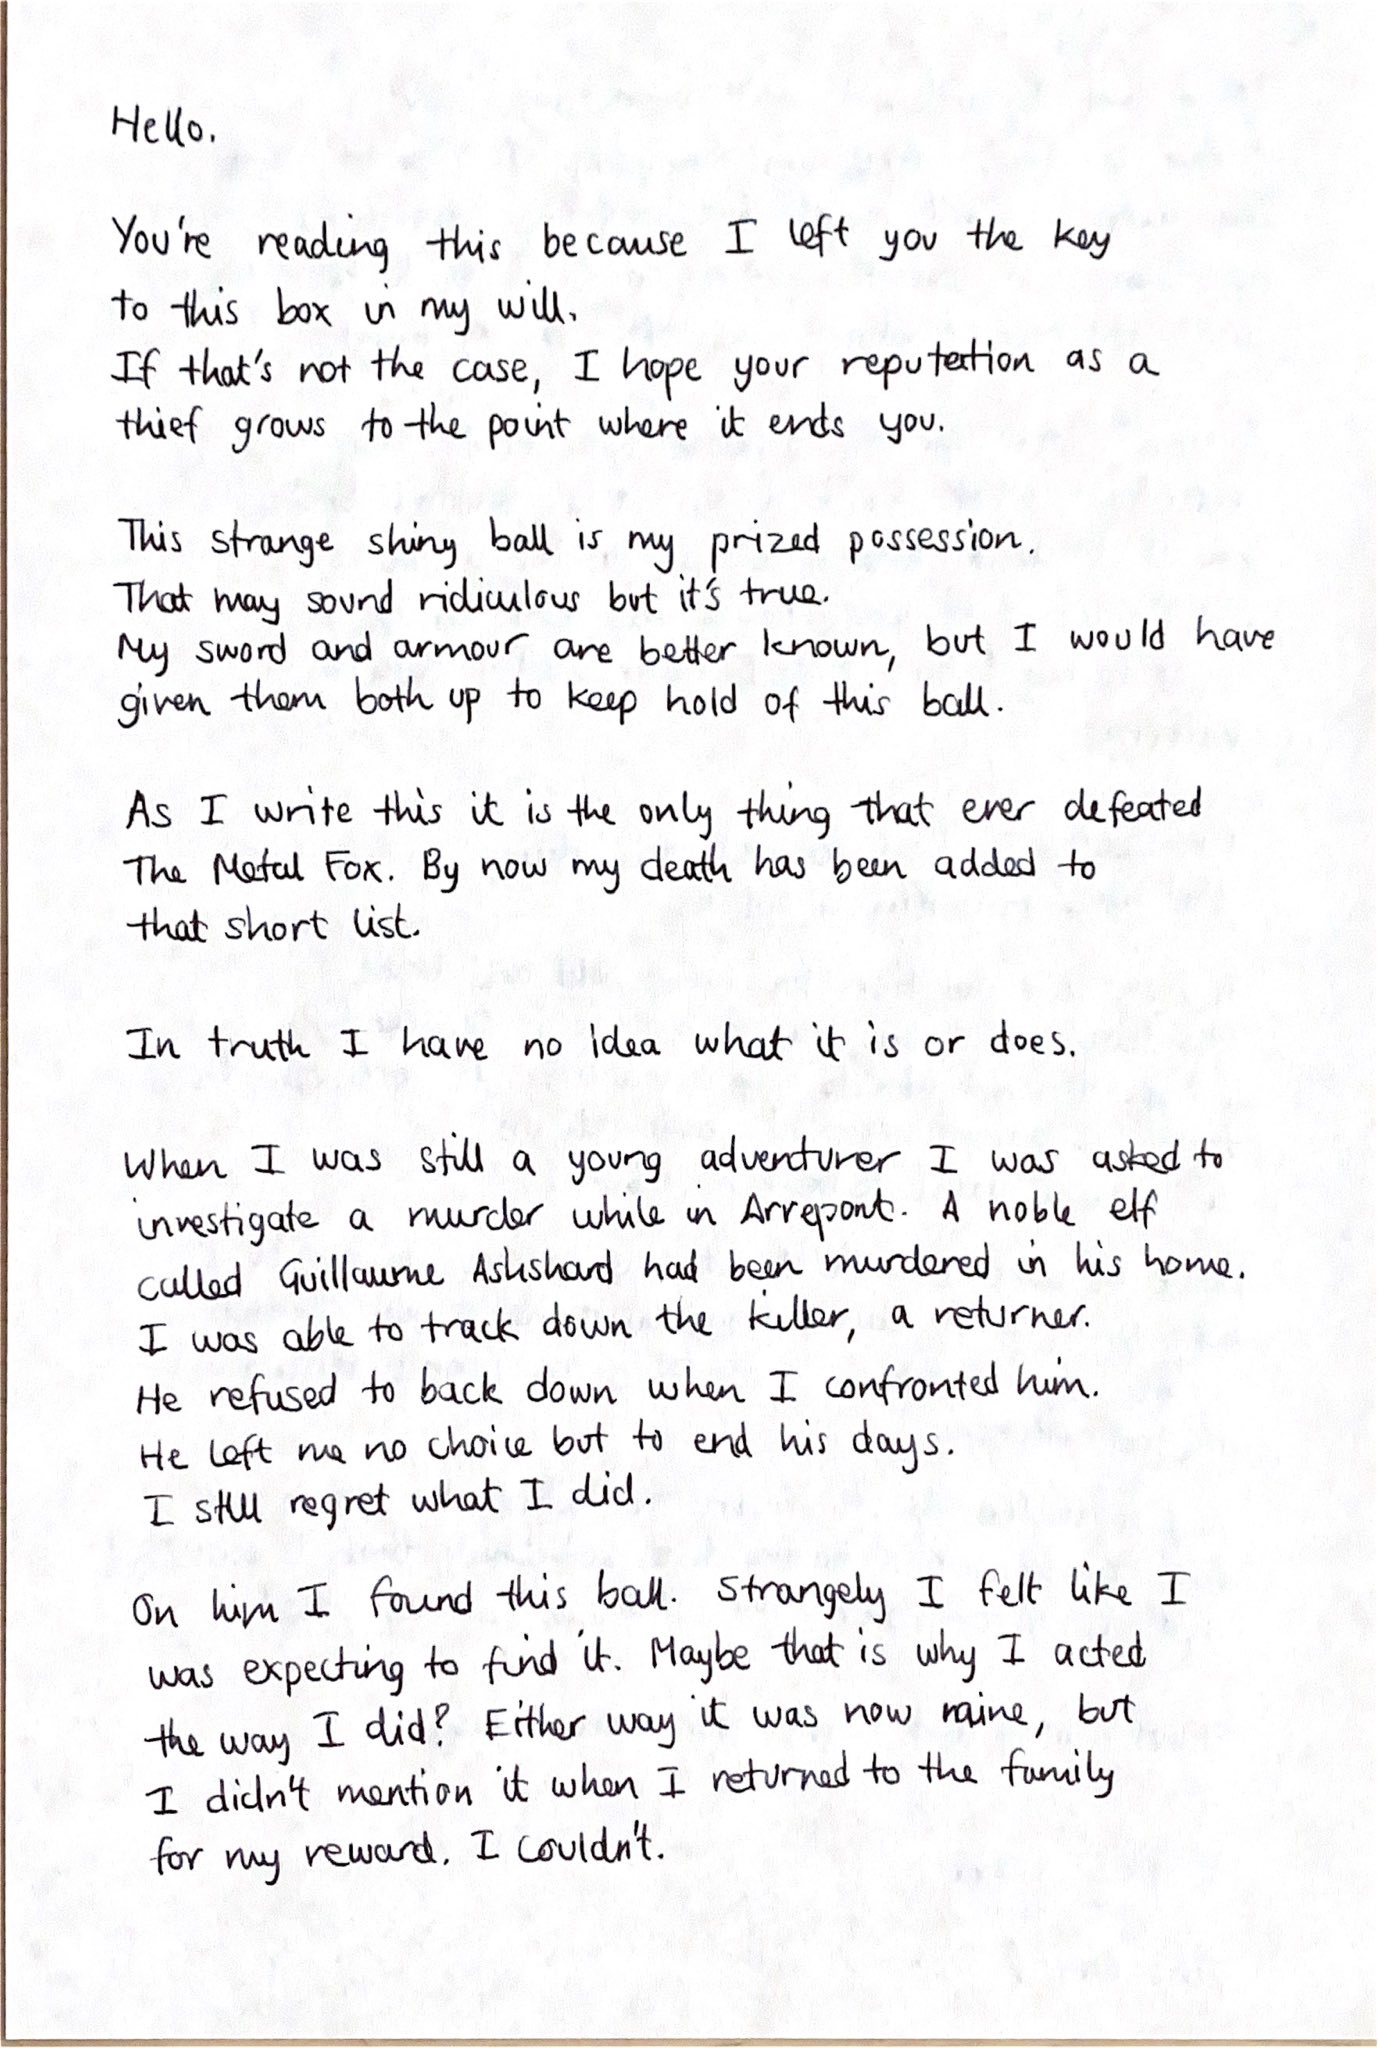 Hello.
You're reading this because I left you the key
to this box in my will.
If that's not the case, I hope your reputation as a
thief grows to the point where it ends you.
This strange shiny ball is my prized possession.
That may sound ridiculous but it's true.
My sword and armour are better known, but I would have
given them both up to keep hold of this ball.
As I write this it is the only thing that ever defeated
The Metal Fox. By now my death has been added to
that short list.
In truth I have no idea what it is or does.
When I was still a young adventurer I was asked to
investigate a murder while in Arrepont. A noble elf
called Guillaume Ashshard had been murdered in his home.
I was able to track down the killer, a returner.
He refused to back down when I confronted him.
He left me no choice but to end his days.
I still regret what I did.
On him I found this ball. Strangely I felt like I
was expecting to find it. Maybe that is why I acted
the way I did? Either way it was now mine, but
I didn't mention it when I returned to the family
for my reward. I couldn't.